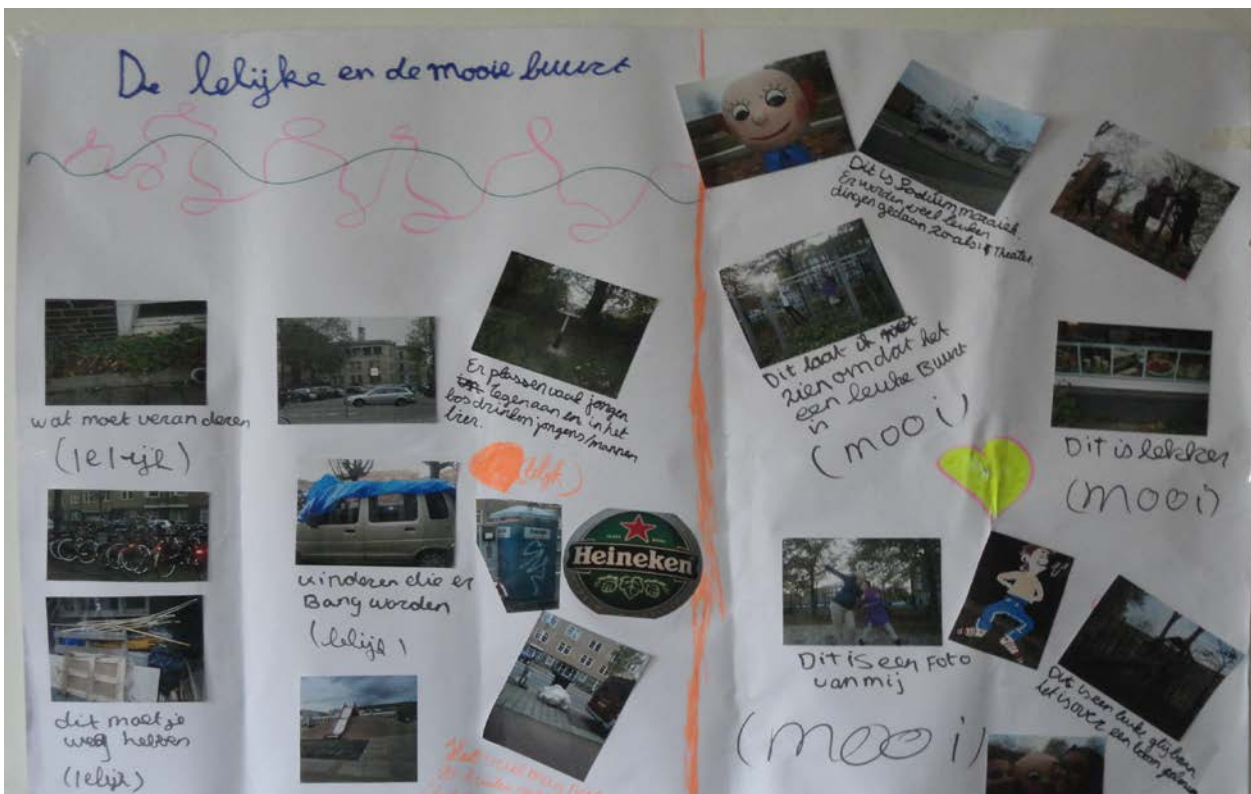 De lelijke en de mooie buurt
wat moet veranderen
(lelijk)
dit moet je
weg hebben
(lelijk)
kinderen die er
Bang worden
(lelijk)
Er plassen vaak jongen
tegenaan en in het
bos drinken jongens/mannen
bier.
(lelijk)
Heineken
Dit is Podium mozaiek.
Er worden veel leuken
dingen gedaan zoals: Theater.
Dit laat ik
zien omdat het
een leuke Buurt
is
(mooi)
Dit is lekker
(mooi)
Dit is een Foto
van mij
(mooi)
Dit is een leuke glijbaan
het is over een boom